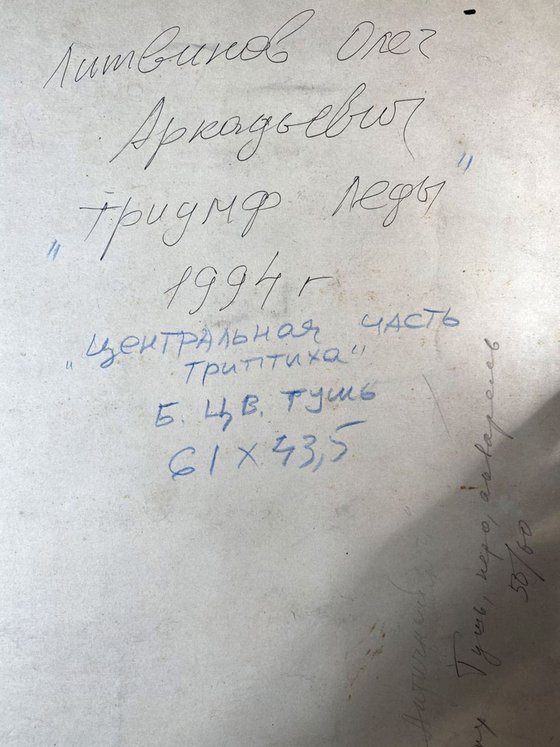 Литвинов Олег
Аркадьевич
"Триумф Леды"
1994 г
"Центральная часть
триптиха"
Б. Цв. тушь
61 х 43,5
Тушь, перо, акварель
50/60